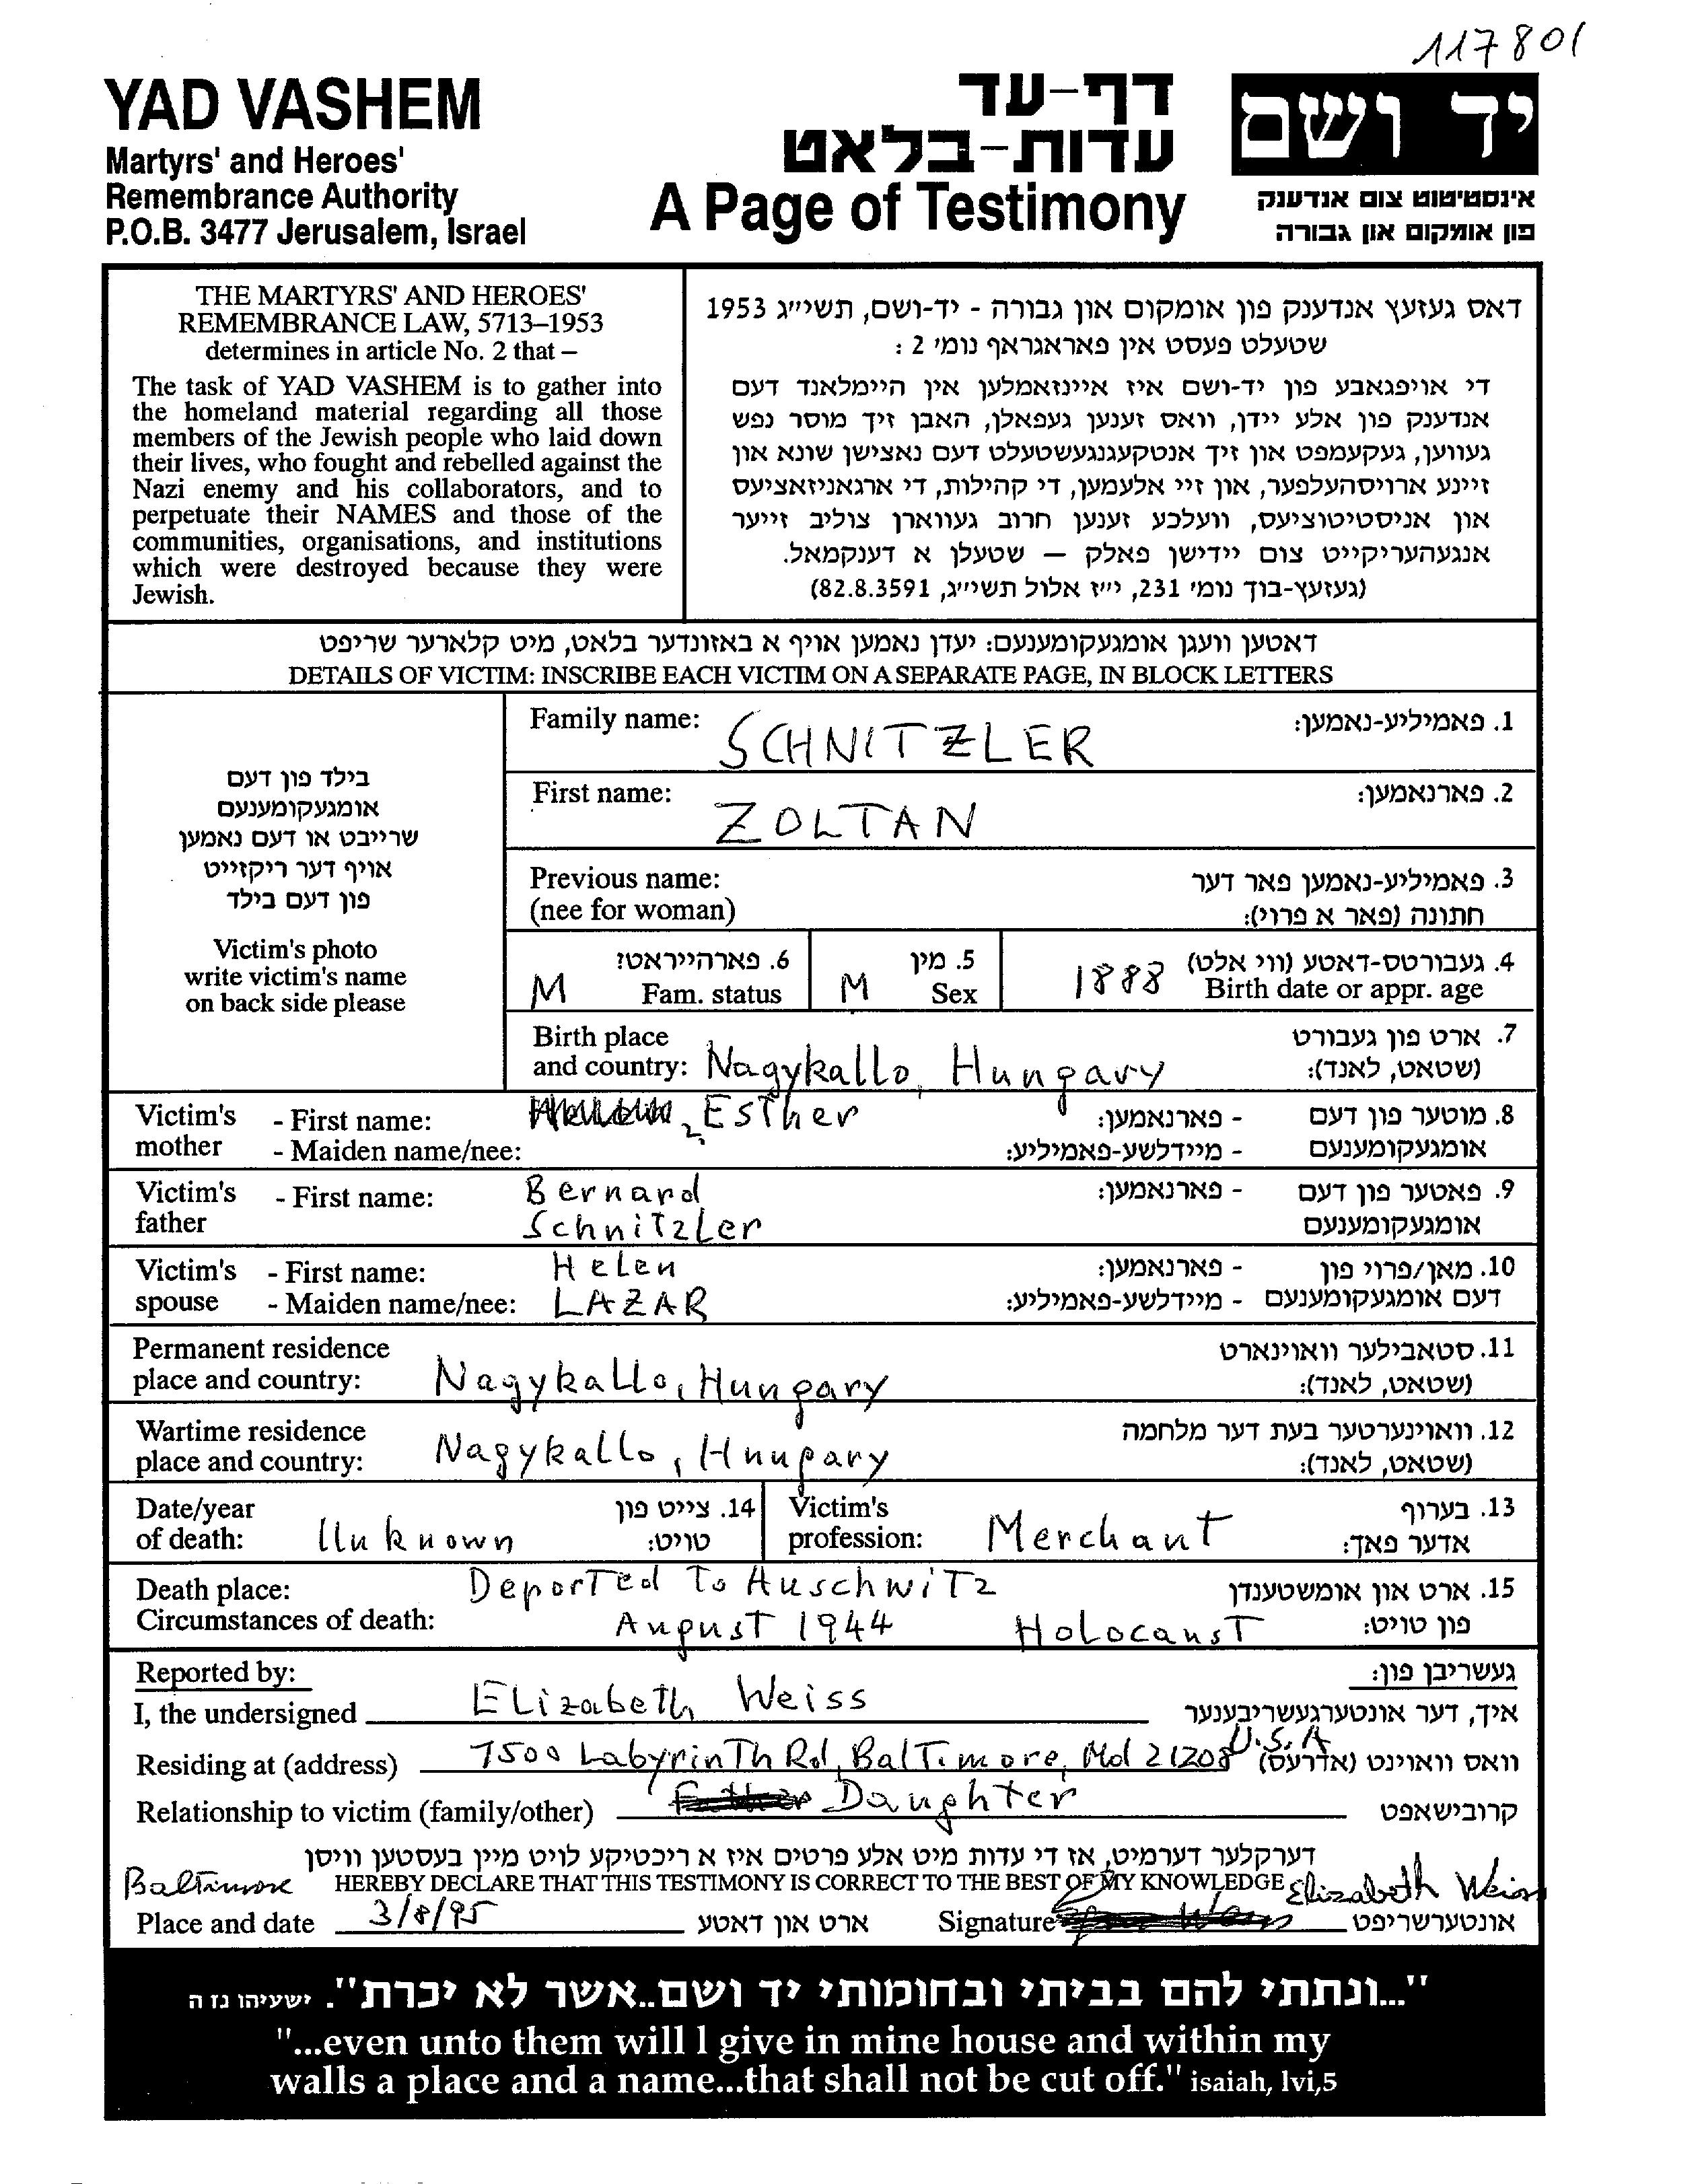 117801
YAD VASHEM
Martyrs' and Heroes'
Remembrance Authority
P.O.B. 3477 Jerusalem, Israel
דף-עד
עדות-בלאט
A Page of Testimony
יד ושם
אינסטיטוט צום אנדענק
פון אומקום און גבורה
THE MARTYRS' AND HEROES'
REMEMBRANCE LAW, 5713–1953
determines in article No. 2 that –
The task of YAD VASHEM is to gather into
the homeland material regarding all those
members of the Jewish people who laid down
their lives, who fought and rebelled against the
Nazi enemy and his collaborators, and to
perpetuate their NAMES and those of the
communities, organisations, and institutions
which were destroyed because they were
Jewish.
דאס געזעץ אנדענק פון אומקום און גבורה - יד-ושם, תשי״ג 1953
שטעלט פעסט אין פאראגראף נומ׳ 2 :
די אויפגאבע פון יד-ושם איז איינזאמלען אין היימלאנד דעם
אנדענק פון אלע יידן, וואס זענען געפאלן, האבן זיך מוסר נפש
געווען, געקעמפט און זיך אנטקעגנגעשטעלט דעם נאצישן שונא און
זיינע ארויסהעלפער, און זיי אלעמען, די קהילות, די ארגאניזאציעס
און אניסטיטוציעס, וועלכע זענען חרוב געווארן צוליב זייער
אנגעהעריקייט צום יידישן פאלק – שטעלן א דענקמאל.
(געזעץ-בוך נומ׳ 231, י״ז אלול תשי״ג, 82.8.3591)
דאטען וועגן אומגעקומענעם: יעדן נאמען אויף א באזונדער בלאט, מיט קלארער שריפט
DETAILS OF VICTIM: INSCRIBE EACH VICTIM ON A SEPARATE PAGE, IN BLOCK LETTERS
בילד פון דעם
אומגעקומענעם
שרייבט או דעם נאמען
אויף דער ריקזייט
פון דעם בילד
Victim's photo
write victim's name
on back side please
Family name: SCHNITZLER 1. פאמיליע-נאמען:
First name: ZOLTAN 2. פארנאמען:
Previous name: 3. פאמיליע-נאמען פאר דער
(nee for woman) חתונה (פאר א פרוי):
6. פארהייראט? 5. מין 4. געבורטס-דאטע (ווי אלט)
M Fam. status M Sex 1888 Birth date or appr. age
Birth place 7. ארט פון געבורט
and country: Nagykallo, Hungary (שטאט, לאנד):
Victim's - First name: Esther - פארנאמען: 8. מוטער פון דעם
mother - Maiden name/nee: - מיידלשע-פאמיליע: אומגעקומענעם
Victim's - First name: Bernard - פארנאמען: 9. פאטער פון דעם
father Schnitzler אומגעקומענעם
Victim's - First name: Helen - פארנאמען: 10. מאן/פרוי פון
spouse - Maiden name/nee: LAZAR - מיידלשע-פאמיליע: דעם אומגעקומענעם
Permanent residence 11. סטאבילער וואוינארט
place and country: Nagykallo, Hungary (שטאט, לאנד):
Wartime residence 12. וואוינערטער בעת דער מלחמה
place and country: Nagykallo, Hungary (שטאט, לאנד):
Date/year 14. צייט פון Victim's 13. בערוף
of death: Unknown טויט: profession: Merchant אדער פאך:
Death place: Deported To Auschwitz 15. ארט און אומשטענדן
Circumstances of death: August 1944 Holocaust פון טויט:
Reported by: געשריבן פון:
I, the undersigned Elizabeth Weiss איך, דער אונטערגעשריבענער
Residing at (address) 7500 Labyrinth Rd, Baltimore, Md 21208 U.S.A וואס וואוינט (אדרעס)
Relationship to victim (family/other) Daughter קרובישאפט
דערקלער דערמיט, אז די עדות מיט אלע פרטים איז א ריכטיקע לויט מיין בעסטען וויסן
Baltimore HEREBY DECLARE THAT THIS TESTIMONY IS CORRECT TO THE BEST OF MY KNOWLEDGE Elizabeth Weiss
Place and date 3/8/95 ארט און דאטע Signature אונטערשריפט
"...ונתתי להם בביתי ובחומותי יד ושם..אשר לא יכרת". ישעיהו נז ה
"...even unto them will I give in mine house and within my
walls a place and a name...that shall not be cut off." isaiah, lvi,5